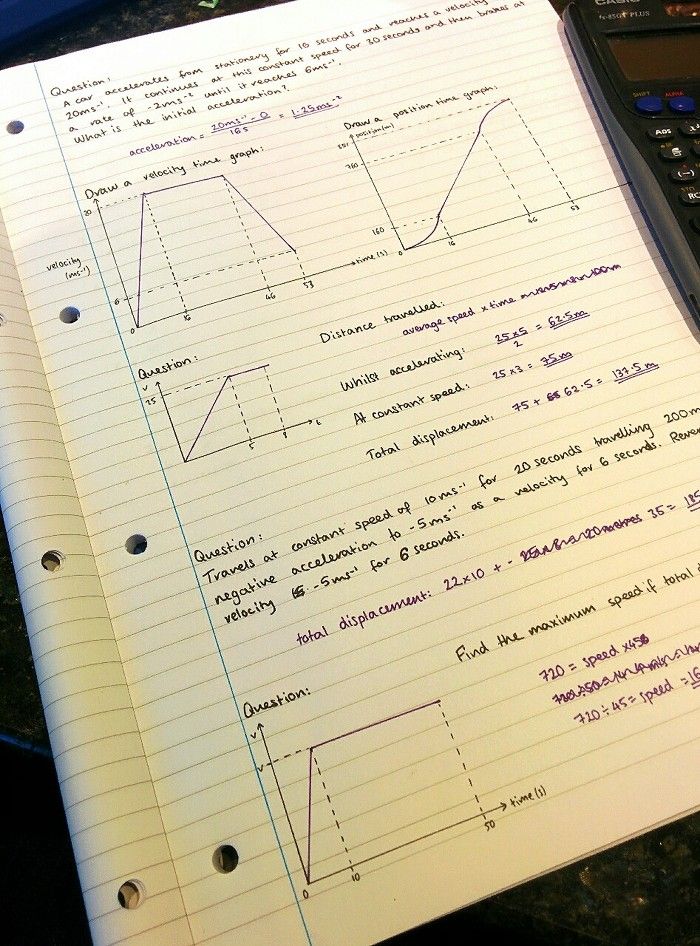 CASIO
fx-85GT PLUS
SHIFT ALPHA
Abs
(-)
RC
Question:
A car accelerates from stationery for 16 seconds and reaches a velocity
20ms⁻¹. It continues at this constant speed for 30 seconds and then brakes at
a rate of -2ms⁻² until it reaches 6ms⁻¹.
What is the initial acceleration?
acceleration = 20ms⁻¹ - 0 / 16s = 1.25ms⁻²
Draw a velocity time graph:
20
velocity
(ms⁻¹)
6
0
16
46
53
time (s)
Draw a position time graph:
position (m)
760
160
0
16
46
53
Question:
v
25
5
t
Distance travelled:
average speed x time
Whilst accelerating: 25 x 5 / 2 = 62.5m
At constant speed: 25 x 3 = 75m
Total displacement: 75 + 62.5 = 137.5m
Question:
Travels at constant speed of 10ms⁻¹ for 20 seconds travelling 200m
negative acceleration to -5ms⁻¹ as a velocity for 6 seconds. Rever
velocity is -5ms⁻¹ for 6 seconds.
total displacement: 22x10 + - 35 = 185
Question:
v
v
0
10
50
time (s)
Find the maximum speed if total d
720 = speed x 45
720 ÷ 45 = speed = 16